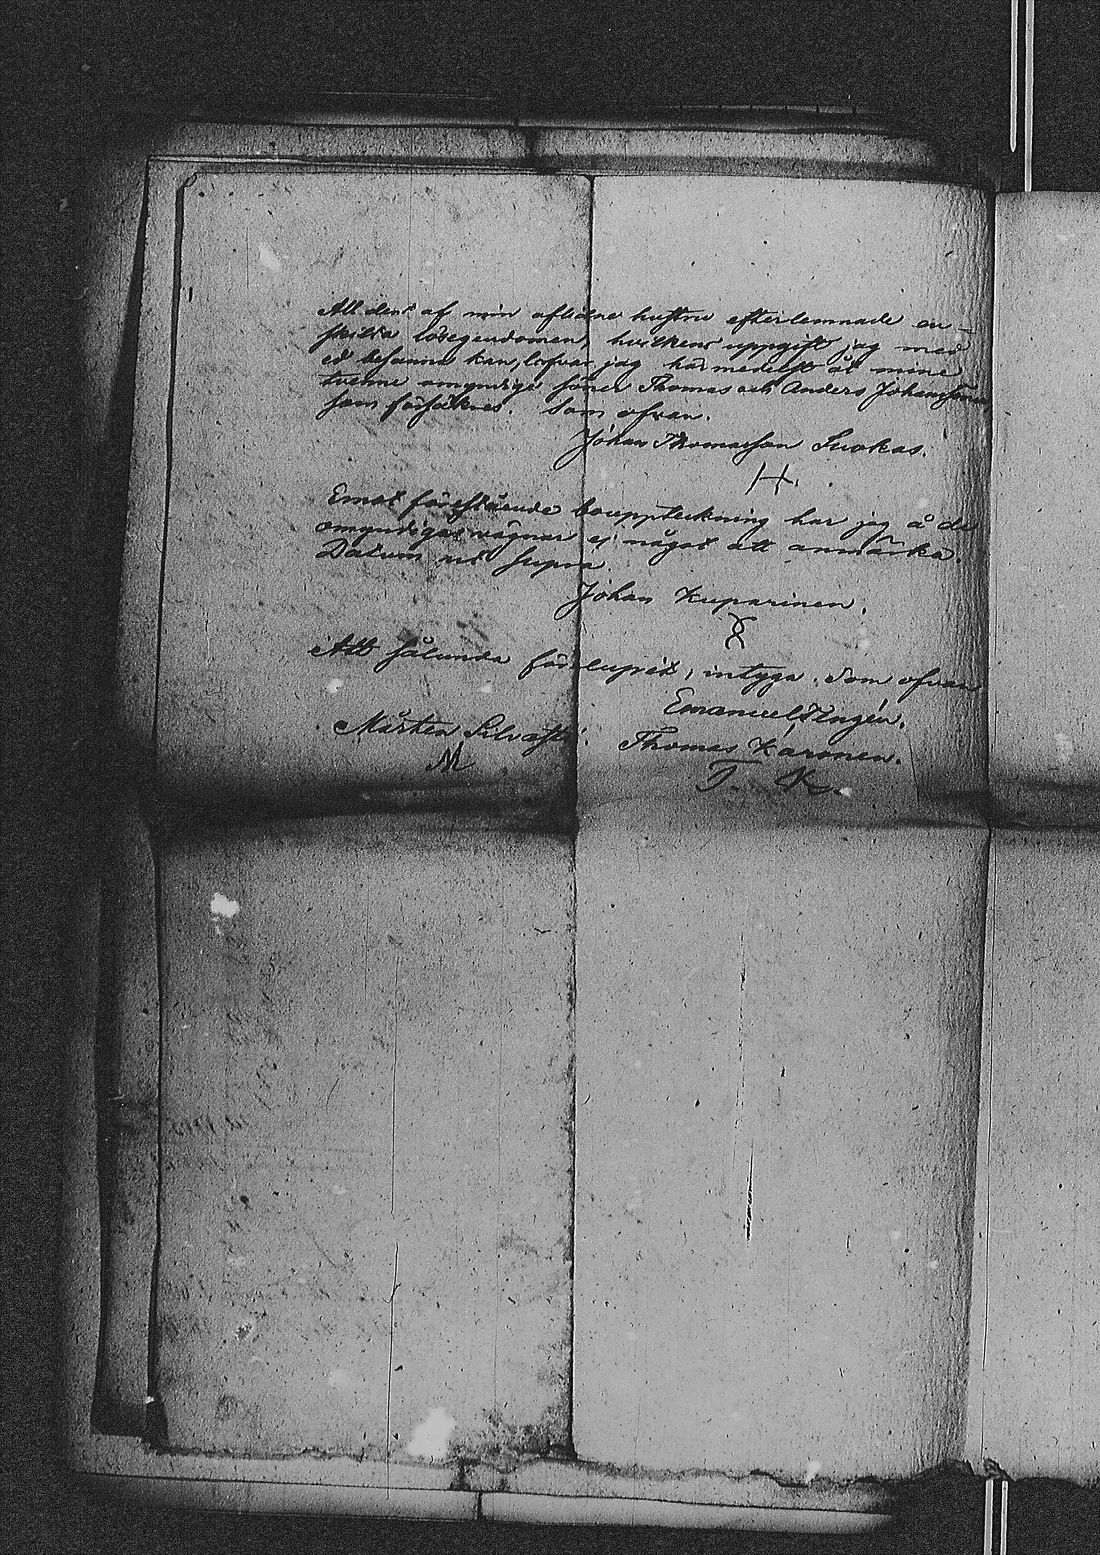 All den af min aflidne hustru efterlemnade en-
skilda lösegendomen, hvilkens uppgift jag med
ed besanna kan, lofvar jag härmedelst åt mine
tvenne omyndige söner Thomas och Anders Johanssöner
som försäkras. Som ofvan.
Johan Thomasson Suokas.
H.
Emot förestående bouppteckning har jag å de
omyndigas vägnar ej något att anmärka.
Datum ut supra.
Johan Kuparinen.
Att sålunda förelupit, intyga. Som ofvan
Emanuel Ungén.
Mårten Silvasti. Thomas Karonen.
M T. K.